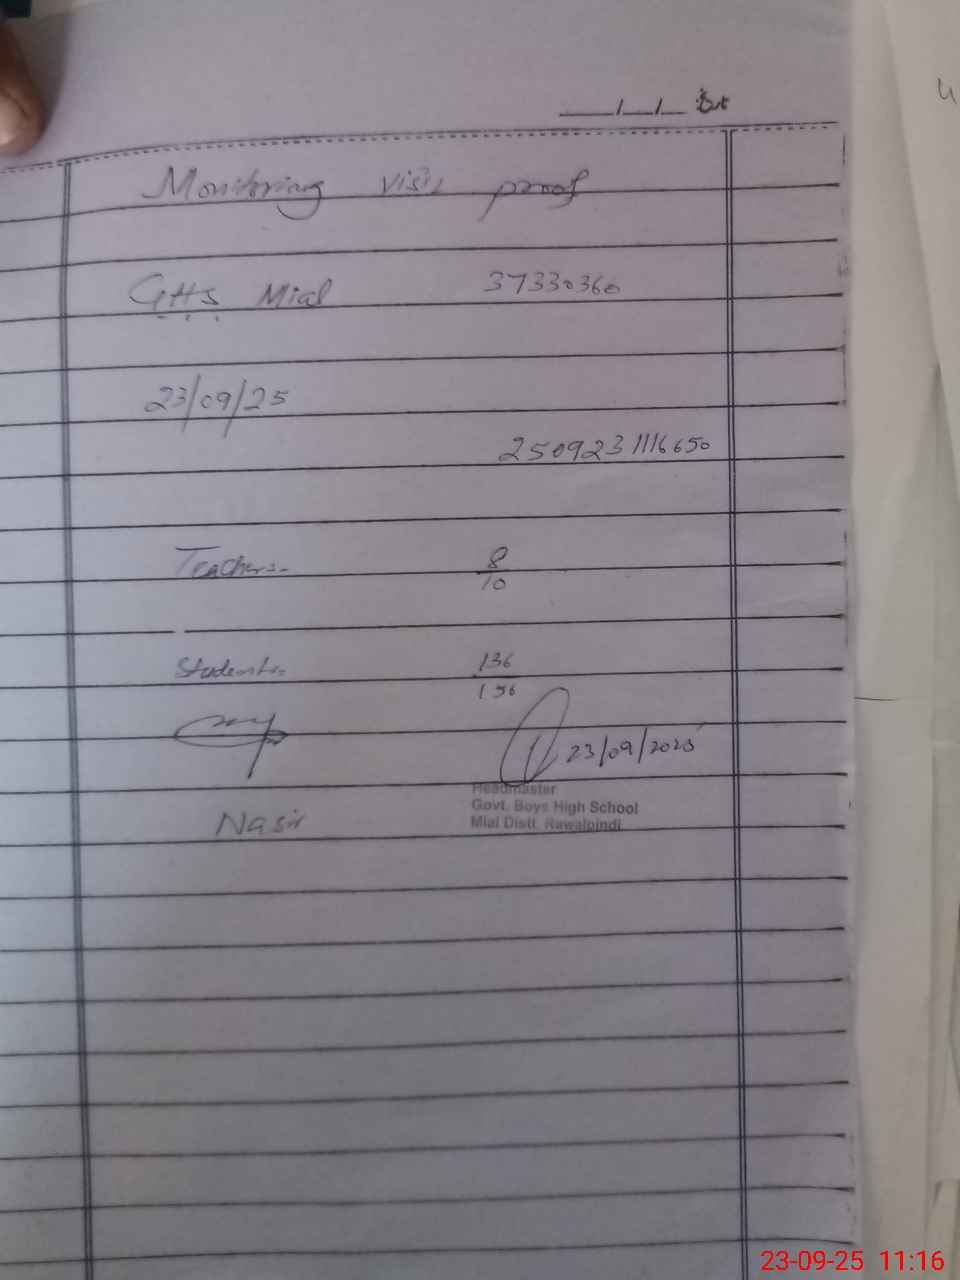 Monitoring visit proof
GHS Mial 37330360
23/09/25
2509231116650
Teachers- 8/10
Students- 136/156
23/09/2025
Headmaster
Govt. Boys High School
Mial Distt. Rawalpindi
Nasir
23-09-25 11:16